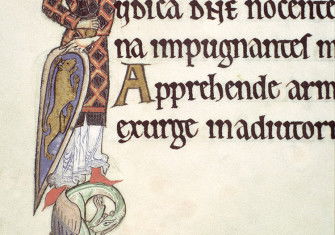 vdica DNE nocente
na impugnantes m
Apprehende arm
exurge inadiutori